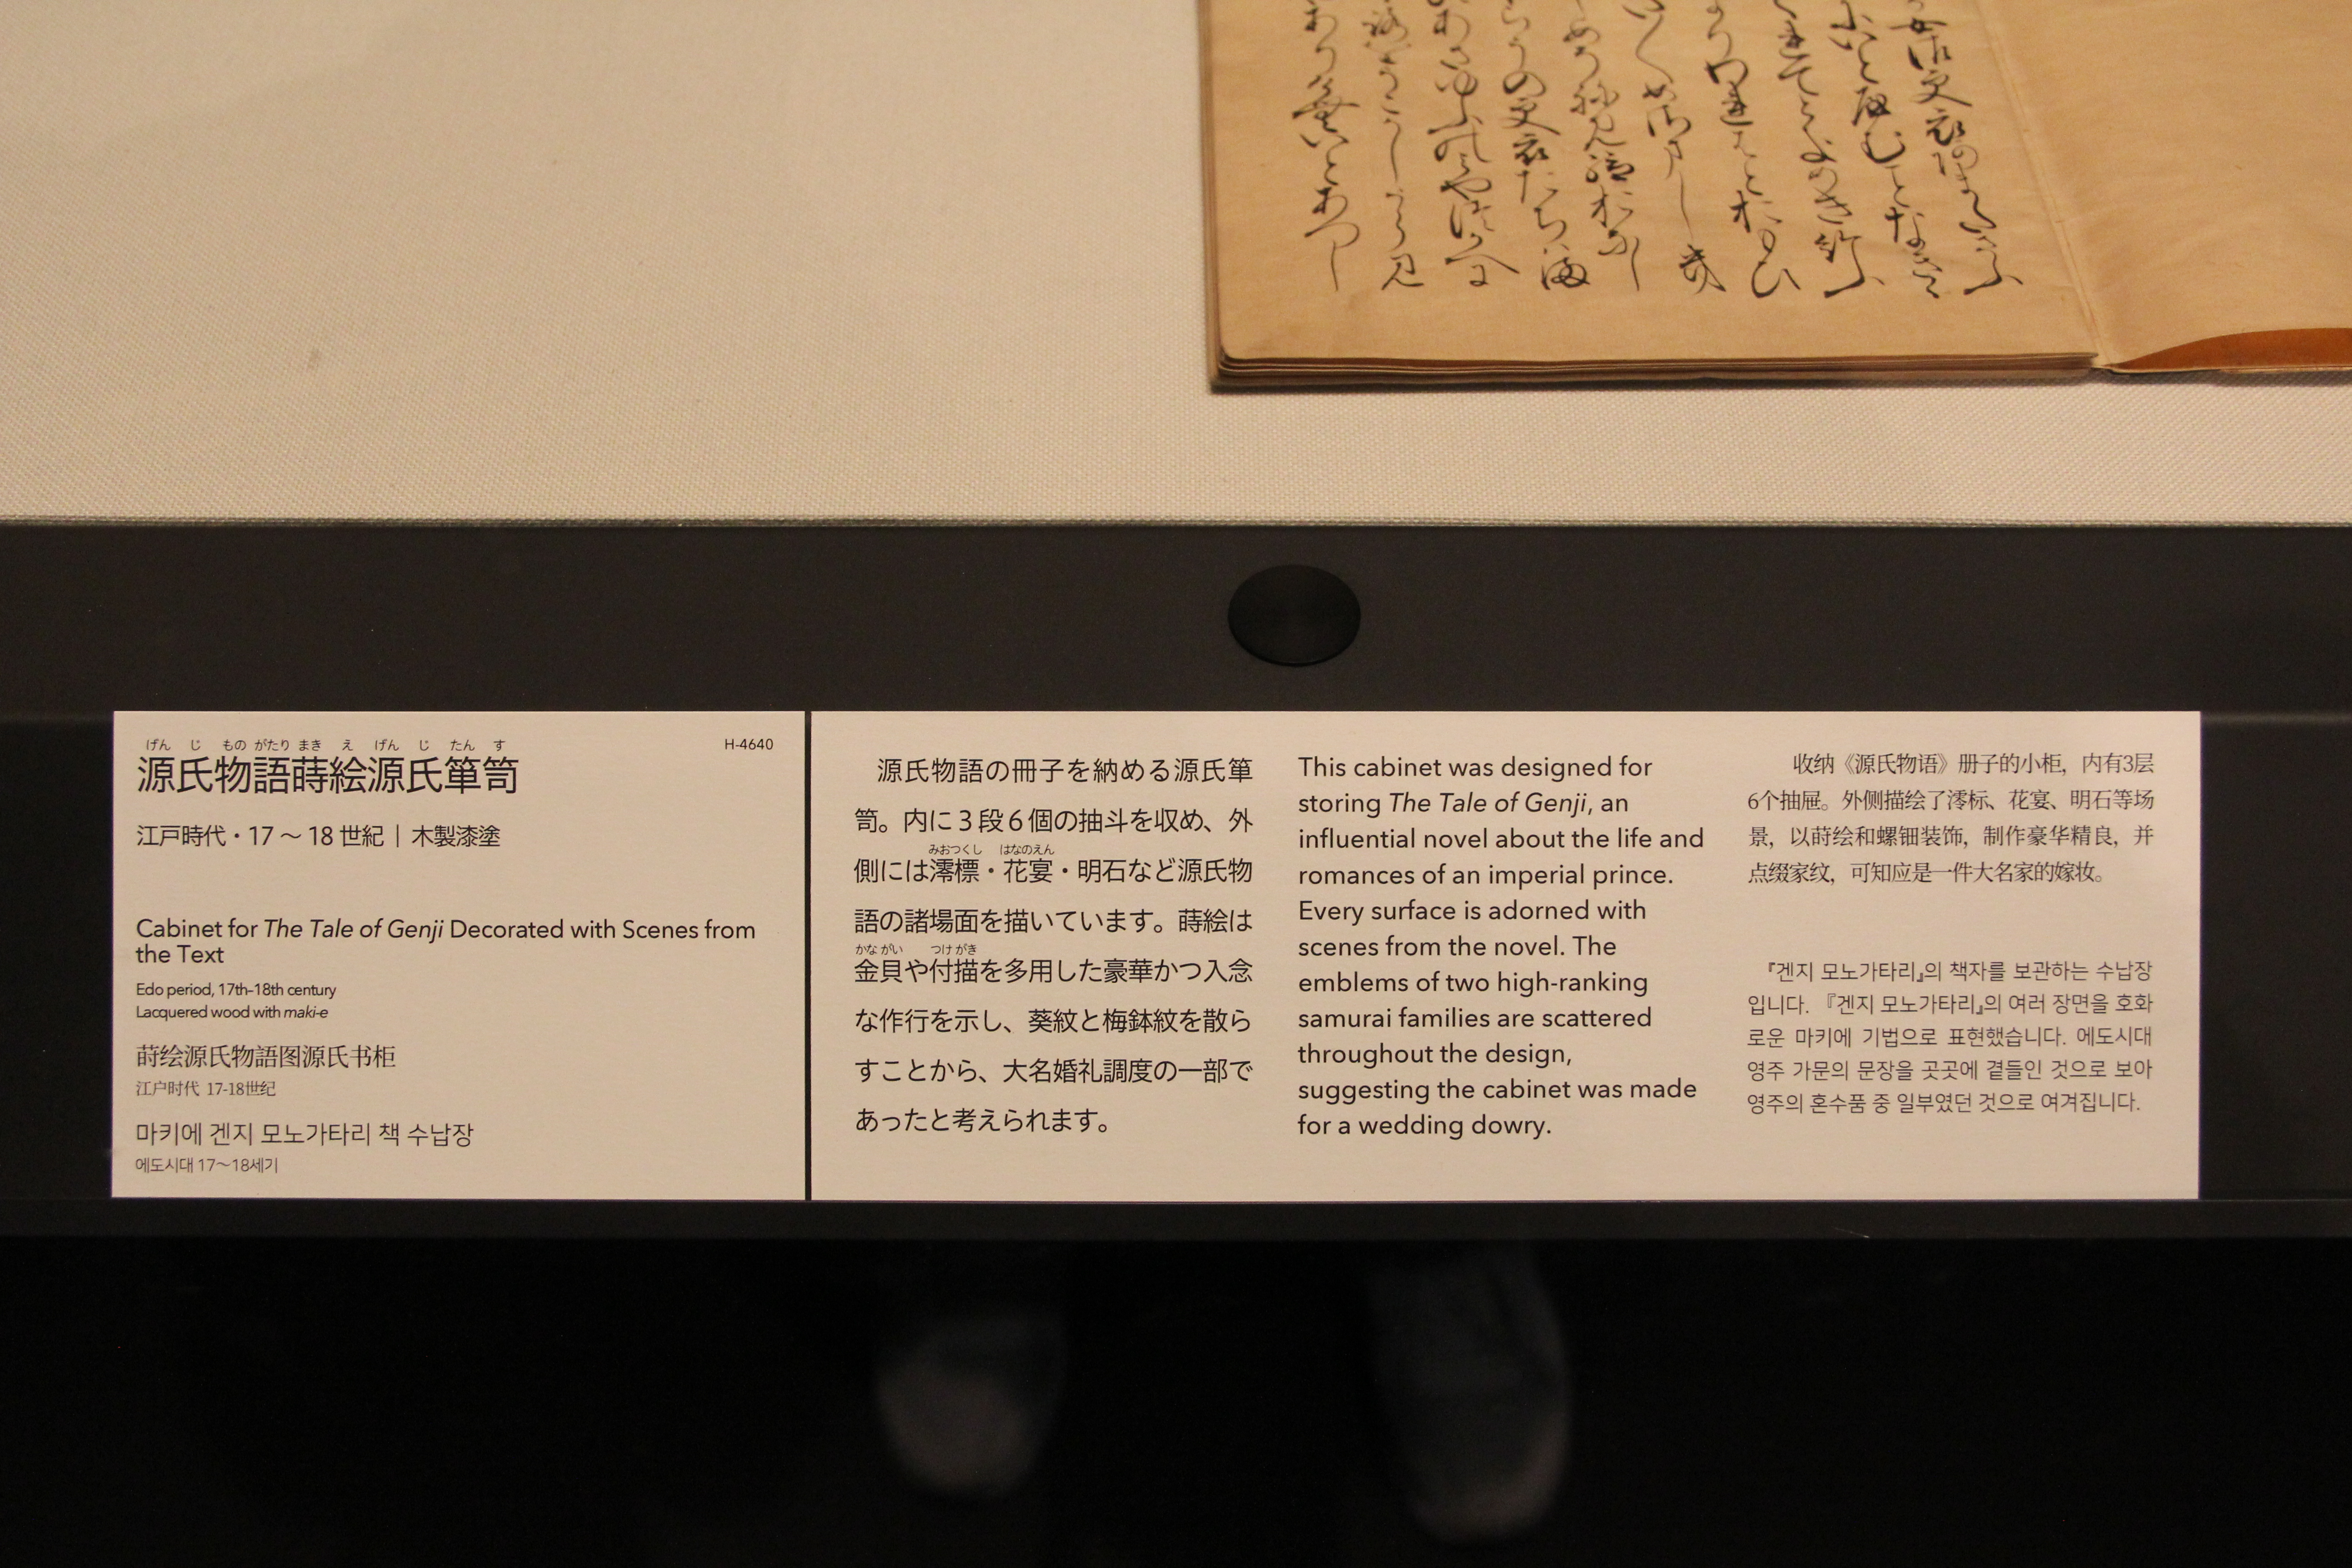 女御更衣
げん じ もの がたり まき え げん じ たん す
源氏物語蒔絵源氏簞笥
H-4640
江戸時代・17 ～ 18 世紀｜木製漆塗
Cabinet for The Tale of Genji Decorated with Scenes from
the Text
Edo period, 17th-18th century
Lacquered wood with maki-e
莳绘源氏物語图源氏书柜
江户时代 17-18世纪
마키에 겐지 모노가타리 책 수납장
에도시대 17～18세기
源氏物語の冊子を納める源氏簞
笥。内に３段６個の抽斗を収め、外
みおつくし はなのえん
側には澪標・花宴・明石など源氏物
語の諸場面を描いています。蒔絵は
かな がい つけ がき
金貝や付描を多用した豪華かつ入念
な作行を示し、葵紋と梅鉢紋を散ら
すことから、大名婚礼調度の一部で
あったと考えられます。
This cabinet was designed for
storing The Tale of Genji, an
influential novel about the life and
romances of an imperial prince.
Every surface is adorned with
scenes from the novel. The
emblems of two high-ranking
samurai families are scattered
throughout the design,
suggesting the cabinet was made
for a wedding dowry.
收纳《源氏物语》册子的小柜，内有3层
6个抽屉。外侧描绘了澪标、花宴、明石等场
景，以莳绘和螺钿装饰，制作豪华精良，并
点缀家纹，可知应是一件大名家的嫁妆。
『겐지 모노가타리』의 책자를 보관하는 수납장
입니다. 『겐지 모노가타리』의 여러 장면을 호화
로운 마키에 기법으로 표현했습니다. 에도시대
영주 가문의 문장을 곳곳에 곁들인 것으로 보아
영주의 혼수품 중 일부였던 것으로 여겨집니다.